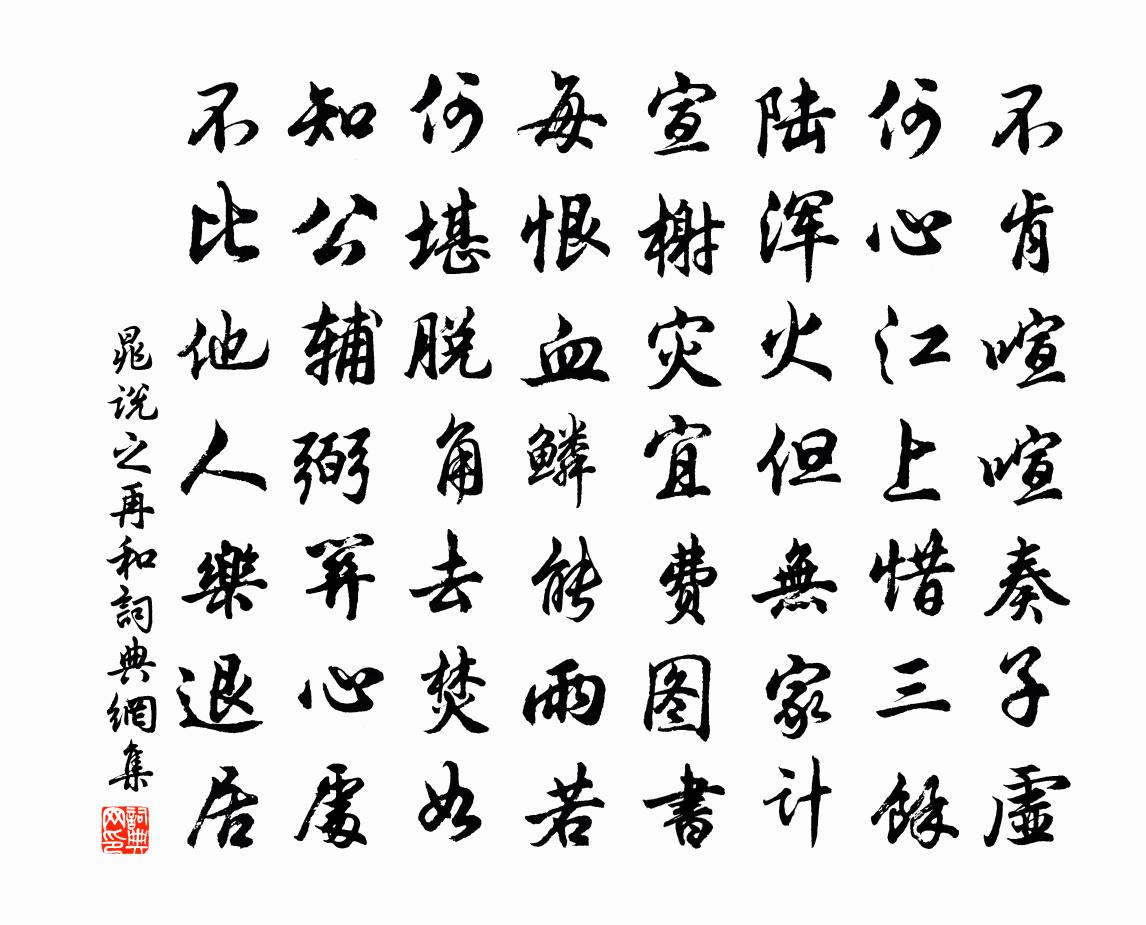 不肯喧喧奏子虛
何心江上惜三餘
陆浑火但無家计
宣榭灾宜费图書
每恨血鳞能雨若
何堪脱角去焚如
知公辅弼筭心處
不比他人樂退居
晁说之再和詞典網集
詞典网印